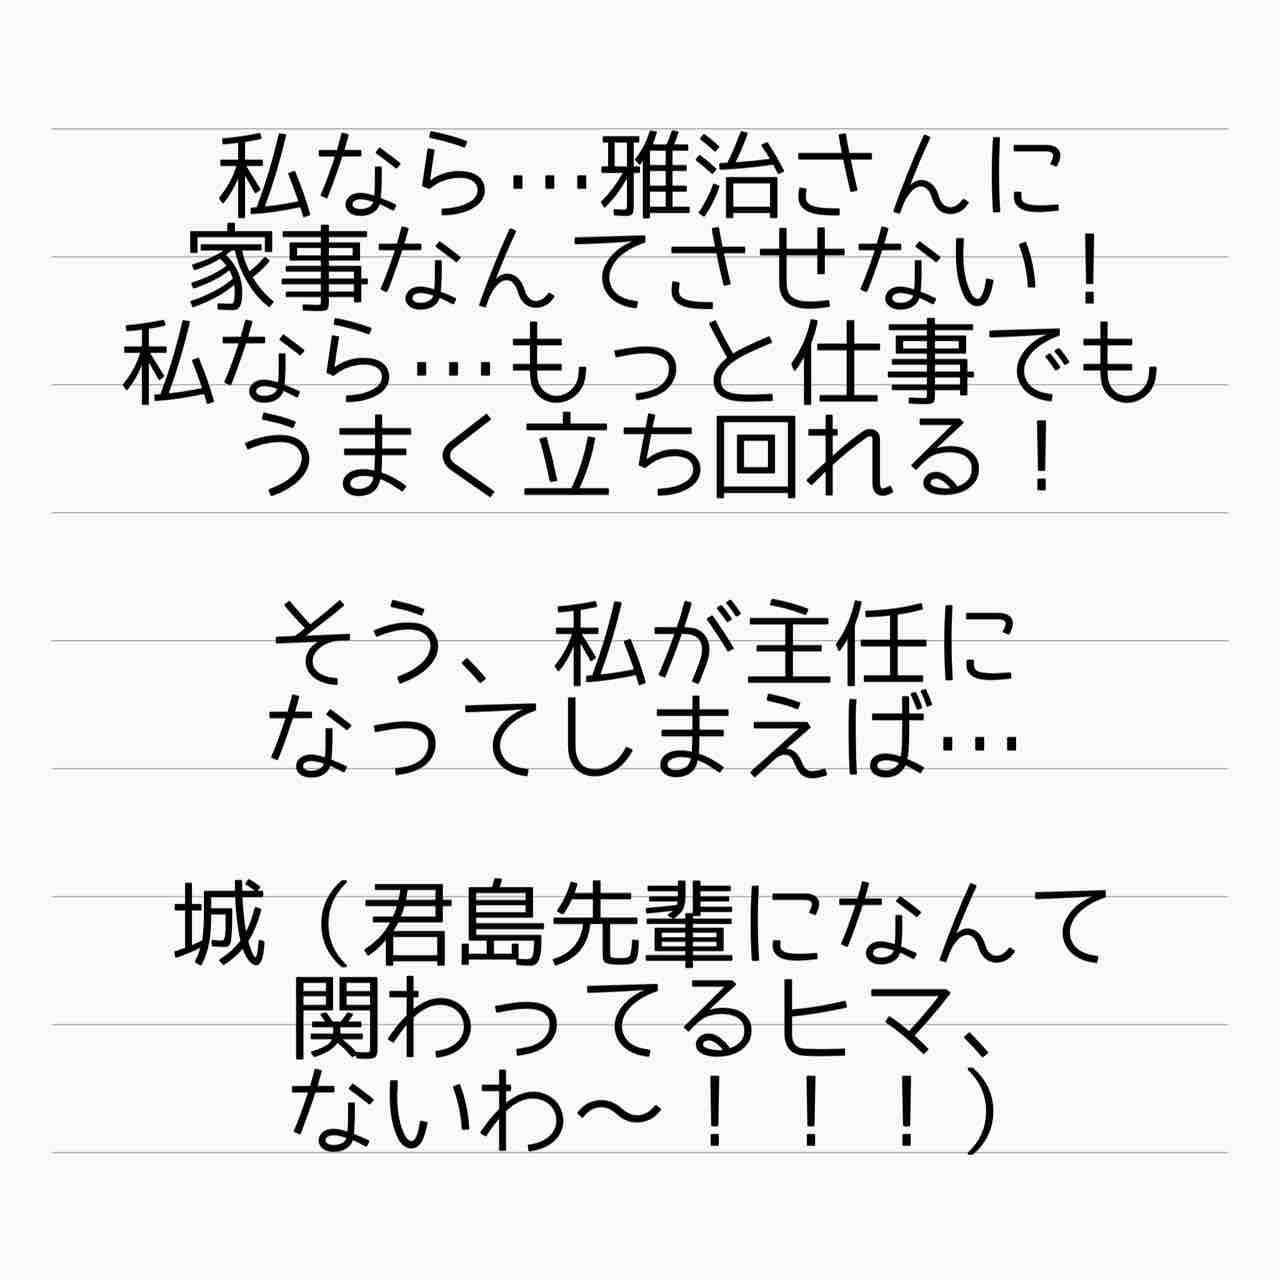 私なら…雅治さんに
家事なんてさせない！
私なら…もっと仕事でも
うまく立ち回れる！
そう、私が主任に
なってしまえば…
城（君島先輩になんて
関わってるヒマ、
ないわ〜！！！）